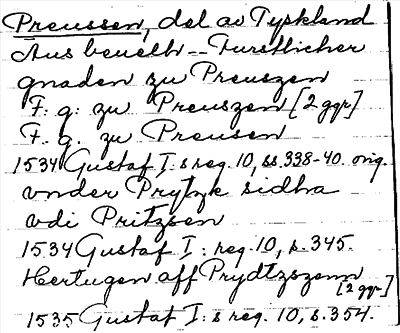 Preussen, del av Tyskland
Aus beuelh -- Furstlicher
gnaden zu Preuszen
F: g: zu Preuszen [2 ggr]
F. g. zu Preusen
1534 Gustaf I:s reg. 10, ss. 338-40. orig.
vnder Prytzk sidha
vdi Pritzsen
1534 Gustaf I: reg. 10, s. 345.
Hertugen aff Prydtzszenn
[2 ggr]
1535 Gustaf I:s reg. 10, s. 354.